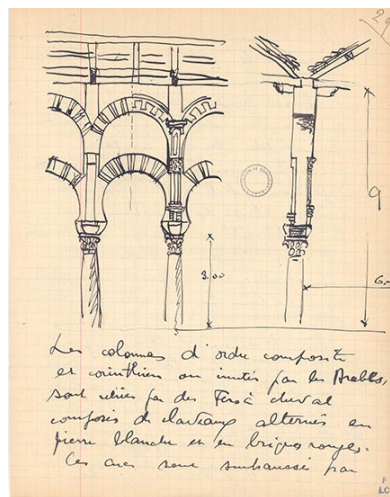 29
9
3.00
Les colonnes d'ordre composite
et corinthien ou imités par les Arabes,
sont reliées par des Fers à cheval
composés de claveaux alternés en
pierre blanche et en briques rouges.
Ces arcs sont surhaussés par